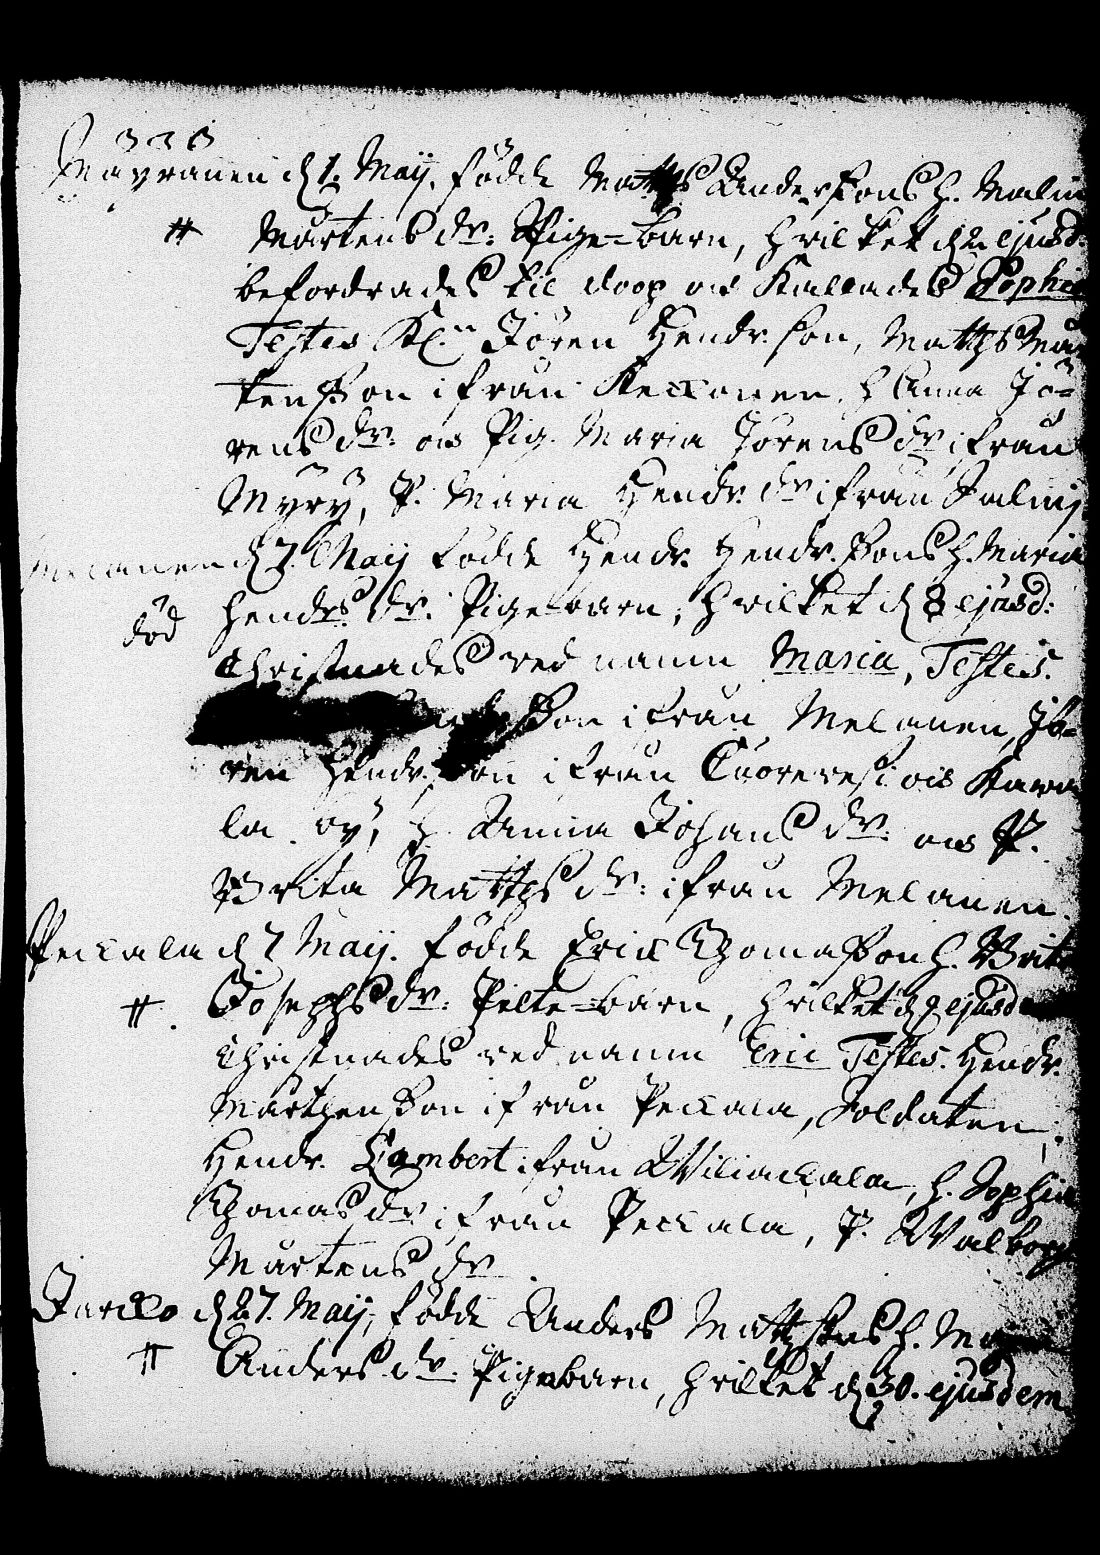 Mäyränen d 1. Maij, födde Matts Anderssons h. Malin
# Mårtens dr: Pige-barn, hvilket d 2 ejusd:
befordrades til doop och kallades Sophia
Testes Kl. Jören Hendr. son, Matts Mår
tensson ifrån Keckonen, h Anna Jö-
rens dr. och Pig. Maria Jörens dr ifrån
Myry, P. Maria Hendr. dr ifrån
Melanen d 7. Maij födde Hendr. Hendr. sons h. Maria
död Hendrs dr. Pigebarn, hvilket d 8 ejusd:
Christnades ved namn Maria, Testes.
son ifrån Melanen, Jö-
ren Hendr. son ifrån och Kava
la öy, h. Anna Johans dr. och P.
Brita Matts dr: ifrån Melanen.
Peckala d 7 Maij. födde Eric Thomasson h. Brita
#. Josephs dr. Pilte-barn, hvilket d 9 ejusd
Christnades ved namn Eric Testes. Hendr.
Mårtensson ifrån Peckala, Soldaten
Hendr. Lambert ifrån Wiliackala, h. Sophia
Thomas dr ifrån Peckala, P. Walborg
Mårtens dr.
d 27. Maij, födde Anders Mattssons h.
# Anders dr. Pigebarn, hvilket d 30. ejusdem